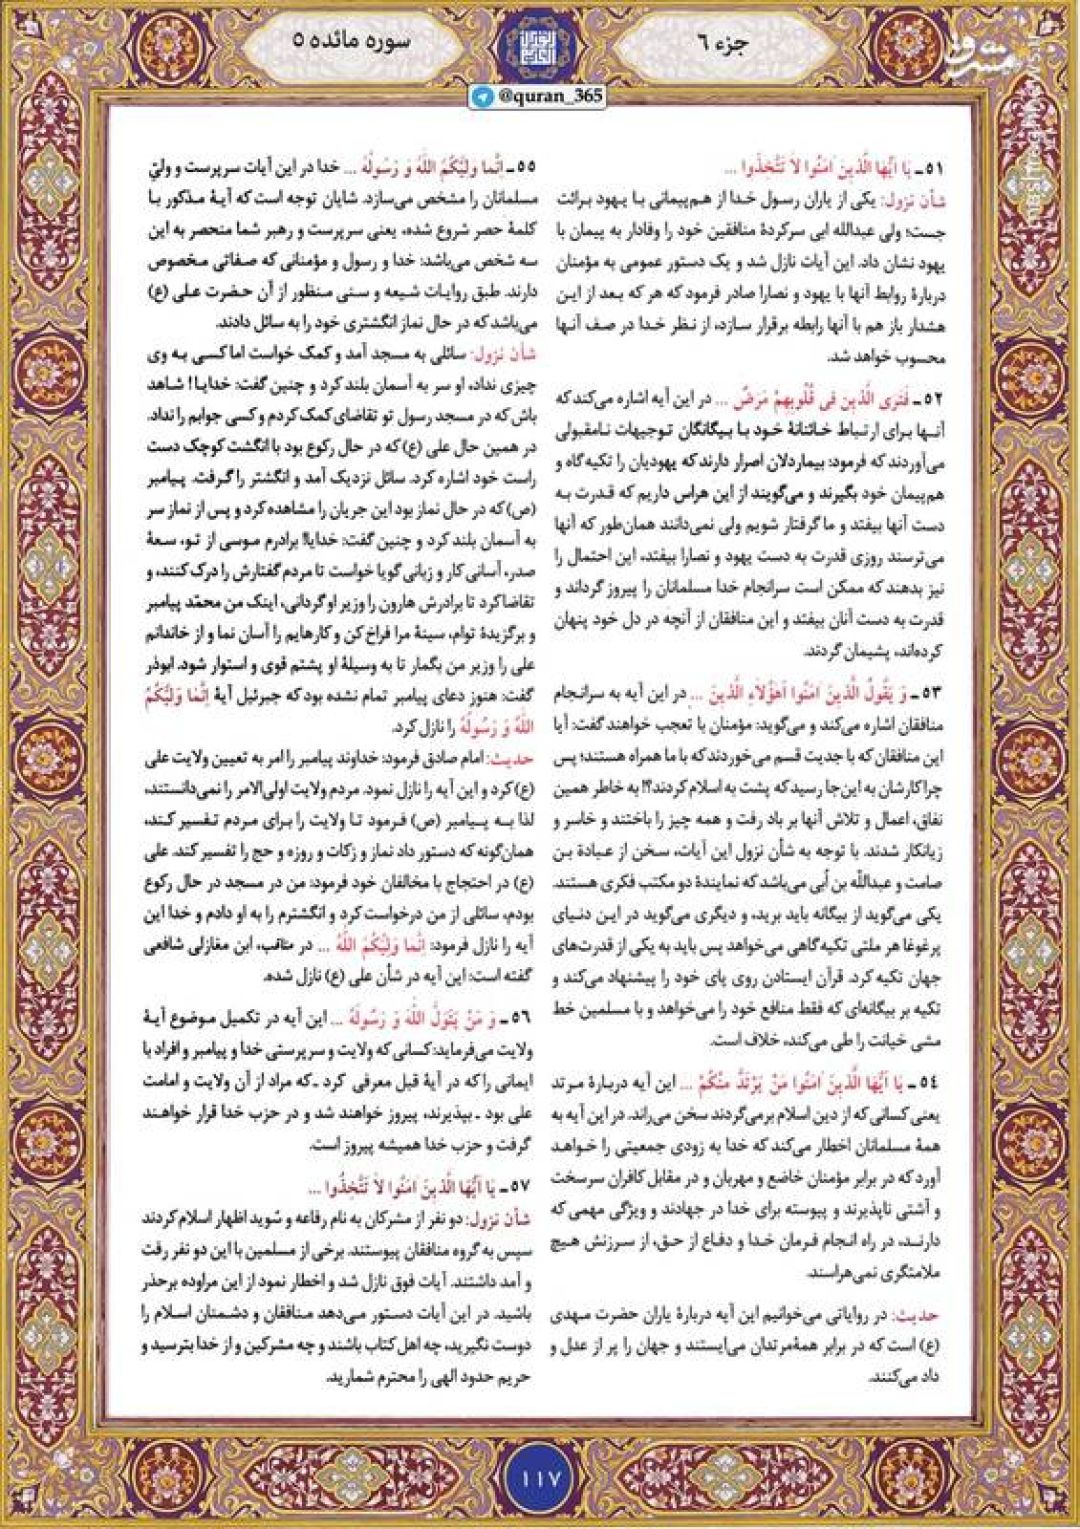 جزء ۶
سوره مائده ۵
@quran_365
مشرق
mashreghnews.ir
۵۱ـ یَا اَیُّهَا الَّذینَ اٰمَنُوا لاَ تَتَّخِذُوا ...
شأن نزول: یکی از یاران رسول خدا از هم‌پیمانی با یهود برائت
جست؛ ولی عبدالله ابی سرکردهٔ منافقین خود را وفادار به پیمان با
یهود نشان داد. این آیات نازل شد و یک دستور عمومی به مؤمنان
دربارهٔ روابط آنها با یهود و نصارا صادر فرمود که هر که بعد از این
هشدار باز هم با آنها رابطه برقرار سازد، از نظر خدا در صف آنها
محسوب خواهد شد.
۵۲ـ فَتَرَی الَّذینَ فی قُلُوبِهِمْ مَرَضٌ ... در این آیه اشاره می‌کند که
آنـها برای ارتباط خـائنانهٔ خـود بـا بیگانگان تـوجیهات نامقبولی
می‌آوردند که فرمود: بیماردلان اصرار دارند که یهودیان را تکیه‌گاه و
هم‌پیمان خود بگیرند و می‌گویند از این هراس داریم که قدرت به
دست آنها بیفتد و ما گرفتار شویم ولی نمی‌دانند همان‌طور که آنها
می‌ترسند روزی قدرت به دست یهود و نصارا بیفتد، این احتمال را
نیز بدهند که ممکن است سرانجام خدا مسلمانان را پیروز گرداند و
قدرت به دست آنان بیفتد و این منافقان از آنچه در دل خود پنهان
کرده‌اند، پشیمان گردند.
۵۳ـ وَ یَقُولُ الَّذینَ اٰمَنُوا اَهٰؤُلاٰءِ الَّذینَ ... در این آیه به سرانجام
منافقان اشاره می‌کند و می‌گوید: مؤمنان با تعجب خواهند گفت: آیا
این منافقان که با جدیت قسم می‌خوردند که با ما همراه هستند؛ پس
چرا کارشان به این‌جا رسید که پشت به اسلام کردند؟! به خاطر همین
نفاق، اعمال و تلاش آنها بر باد رفت و همه چیز را باختند و خاسر و
زیانکار شدند. با توجه به شأن نزول این آیات، سخن از عبادة بن
صامت و عبدالله بن اُبی می‌باشد که نمایندهٔ دو مکتب فکری هستند.
یکی می‌گوید از بیگانه باید برید، و دیگری می‌گوید در این دنیای
پرغوغا هر ملتی تکیه‌گاهی می‌خواهد پس باید به یکی از قدرت‌های
جهان تکیه کرد. قرآن ایستادن روی پای خود را پیشنهاد می‌کند و
تکیه بر بیگانه‌ای که فقط منافع خود را می‌خواهد و با مسلمین خط
مشی خیانت را طی می‌کند، خلاف است.
۵۴ـ یَا اَیُّهَا الَّذینَ اٰمَنُوا مَنْ یَرْتَدَّ مِنْکُمْ ... این آیه دربارهٔ مرتد
یعنی کسانی که از دین اسلام برمی‌گردند سخن می‌راند. در این آیه به
همهٔ مسلمانان اخطار می‌کند که خدا به زودی جمعیتی را خواهد
آورد که در برابر مؤمنان خاضع و مهربان و در مقابل کافران سرسخت
و آشتی ناپذیرند و پیوسته برای خدا در جهادند و ویژگی مهمی که
دارنـد، در راه انجام فرمان خـدا و دفـاع از حـق، از سـرزنش هـیچ
ملامتگری نمی‌هراسند.
حدیث: در روایاتی می‌خوانیم این آیه دربارهٔ یاران حضرت مـهدی
(ع) است که در برابر همهٔ مرتدان می‌ایستند و جهان را پر از عدل و
داد می‌کنند.
۵۵ـ اِنَّما وَلِیُّکُمُ اللّٰهُ وَ رَسُولُهُ ... خدا در این آیات سرپرست و ولیّ
مسلمانان را مشخص می‌سازد. شایان توجه است که آیهٔ مذکور بـا
کلمهٔ حصر شروع شده، یعنی سرپرست و رهبر شما منحصر به این
سه شخص می‌باشد: خدا و رسول و مؤمنانی که صفاتی مخصوص
دارند. طبق روایات شیعه و سنی منظور از آن حضرت علی (ع)
می‌باشد که در حال نماز انگشتری خود را به سائل دادند.
شأن نزول: سائلی به مسجد آمد و کمک خواست اما کسی به وی
چیزی نداد، او سر به آسمان بلند کرد و چنین گفت: خدایا! شاهد
باش که در مسجد رسول تو تقاضای کمک کردم و کسی جوابم را نداد.
در همین حال علی (ع) که در حال رکوع بود با انگشت کوچک دست
راست خود اشاره کرد. سائل نزدیک آمد و انگشتر را گرفت. پیامبر
(ص) که در حال نماز بود این جریان را مشاهده کرد و پس از نماز سر
به آسمان بلند کرد و چنین گفت: خدایا! برادرم موسی از تو، سعهٔ
صدر، آسانی کار و زبانی گویا خواست تا مردم گفتارش را درک کنند، و
تقاضا کرد تا برادرش هارون را وزیر او گردانی، اینک من محمّد پیامبر
و برگزیدهٔ توام، سینهٔ مرا فراخ کن و کارهایم را آسان نما و از خاندانم
علی را وزیر من بگمار تا به وسیلهٔ او پشتم قوی و استوار شود. ابوذر
گفت: هنوز دعای پیامبر تمام نشده بود که جبرئیل آیهٔ اِنَّما وَلِیُّکُمُ
اللّٰهُ وَ رَسُولُهُ را نازل کرد.
حدیث: امام صادق فرمود: خداوند پیامبر را امر به تعیین ولایت علی
(ع) کرد و این آیه را نازل نمود. مردم ولایت اولی‌الامر را نمی‌دانستند،
لذا بـه پـیامبر (ص) فـرمود تـا ولایت را بـرای مـردم تـفسیر کـند،
همان‌گونه که دستور داد نماز و زکات و روزه و حج را تفسیر کند. علی
(ع) در احتجاج با مخالفان خود فرمود: من در مسجد در حال رکوع
بودم، سائلی از من درخواست کرد و انگشترم را به او دادم و خدا این
آیه را نازل فرمود: اِنَّما وَلِیُّکُمُ اللّٰهُ ... در مناقب، ابن مغازلی شافعی
گفته است: این آیه در شأن علی (ع) نازل شده.
۵۶ـ وَ مَنْ یَتَوَلَّ اللّٰهَ وَ رَسُولَهُ ... این آیه در تکمیل موضوع آیهٔ
ولایت می‌فرماید: کسانی که ولایت و سرپرستی خدا و پیامبر و افراد با
ایمانی را که در آیهٔ قبل معرفی کرد ـ که مراد از آن ولایت و امامت
علی بود ـ بپذیرند، پیروز خواهند شد و در حزب خدا قرار خواهند
گرفت و حزب خدا همیشه پیروز است.
۵۷ـ یَا اَیُّهَا الَّذینَ اٰمَنُوا لاَ تَتَّخِذُوا ...
شأن نزول: دو نفر از مشرکان به نام رفاعه و سُوید اظهار اسلام کردند
سپس به گروه منافقان پیوستند. برخی از مسلمین با این دو نفر رفت
و آمد داشتند. آیات فوق نازل شد و اخطار نمود از این مراوده برحذر
باشید. در این آیات دستور می‌دهد منافقان و دشمنان اسلام را
دوست نگیرید، چه اهل کتاب باشند و چه مشرکین و از خدا بترسید و
حریم حدود الهی را محترم شمارید.
۱۱۷